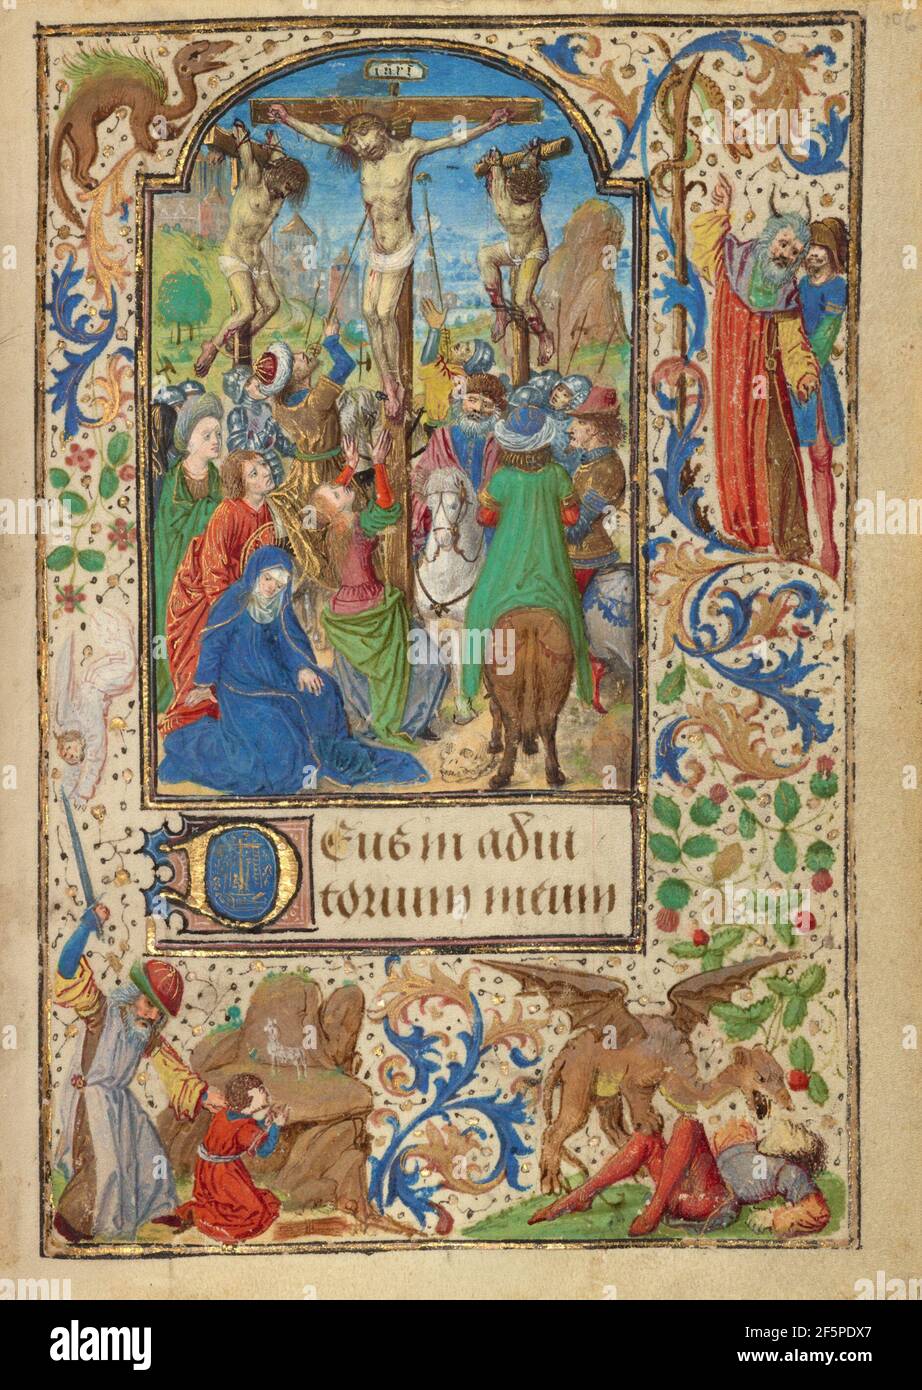 inri
Deus in adiu
torium meum
alamy
Image ID: 2F5PDX7
www.alamy.com